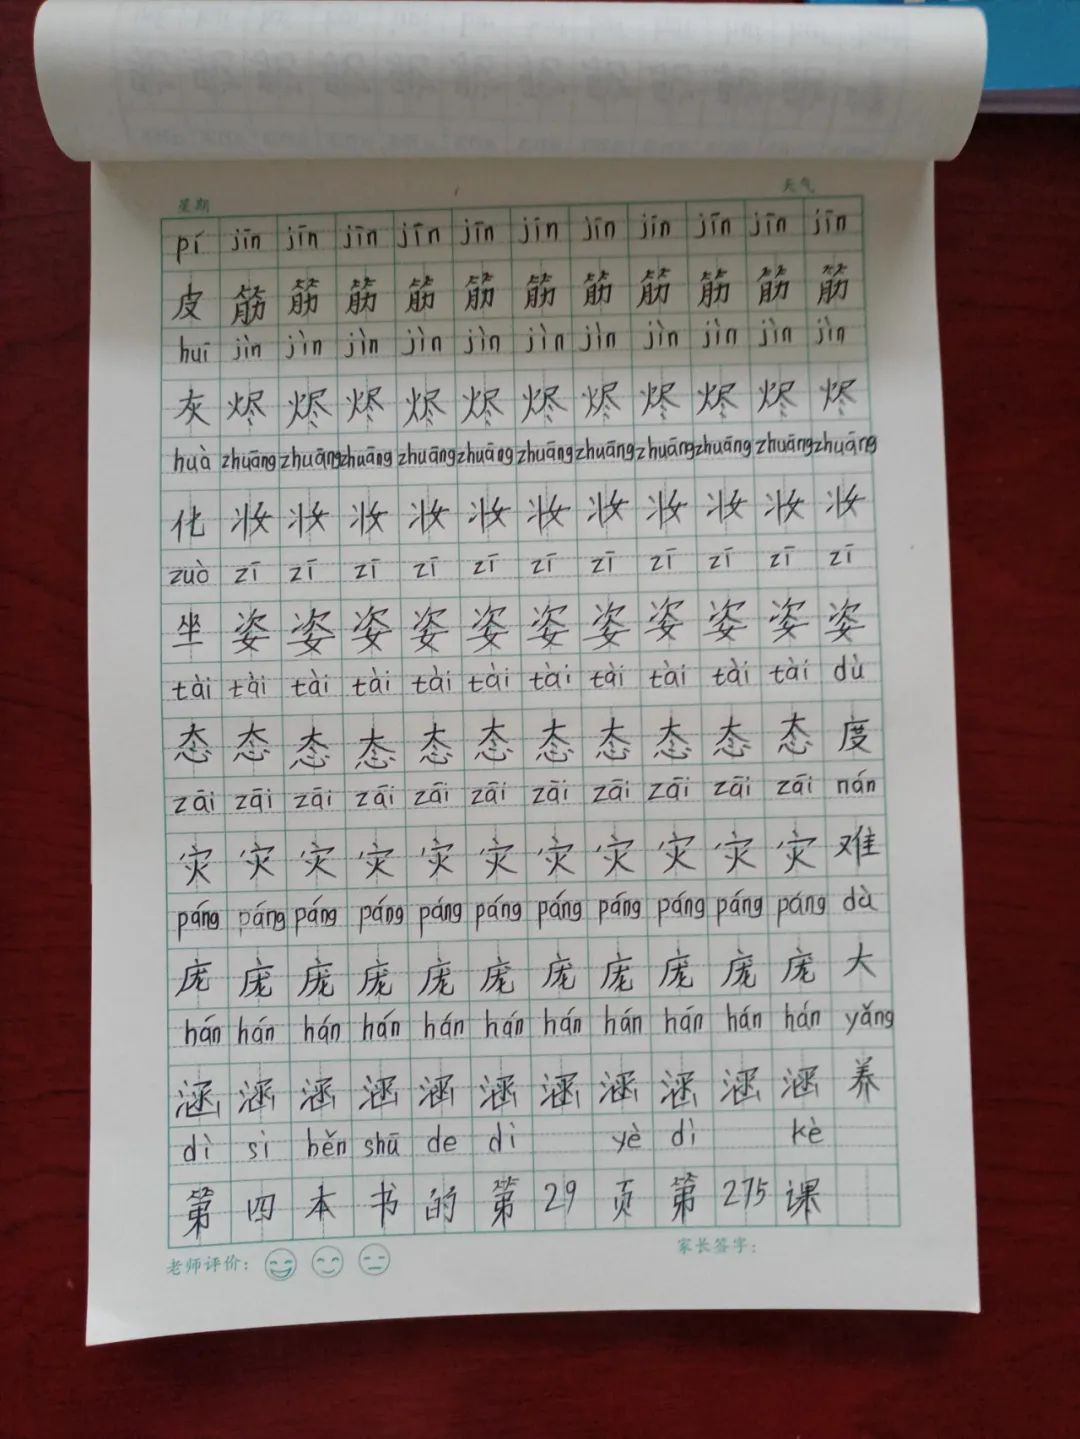 星期 天气
pí jīn jīn jīn jīn jīn jīn jīn jīn jīn jīn jīn
皮 筋 筋 筋 筋 筋 筋 筋 筋 筋 筋 筋
huī jìn jìn jìn jìn jìn jìn jìn jìn jìn jìn jìn
灰 烬 烬 烬 烬 烬 烬 烬 烬 烬 烬 烬
huà zhuāng zhuāng zhuāng zhuāng zhuāng zhuāng zhuāng zhuāng zhuāng zhuāng zhuāng
化 妆 妆 妆 妆 妆 妆 妆 妆 妆 妆 妆
zuò zī zī zī zī zī zī zī zī zī zī zī
坐 姿 姿 姿 姿 姿 姿 姿 姿 姿 姿 姿
tài tài tài tài tài tài tài tài tài tài tài dù
态 态 态 态 态 态 态 态 态 态 态 度
zāi zāi zāi zāi zāi zāi zāi zāi zāi zāi zāi nán
灾 灾 灾 灾 灾 灾 灾 灾 灾 灾 灾 难
páng páng páng páng páng páng páng páng páng páng páng dà
庞 庞 庞 庞 庞 庞 庞 庞 庞 庞 庞 大
hán hán hán hán hán hán hán hán hán hán hán yǎng
涵 涵 涵 涵 涵 涵 涵 涵 涵 涵 涵 养
dì sì běn shū de dì yè dì kè
第 四 本 书 的 第 29 页 第 275 课
老师评价： 家长签字：